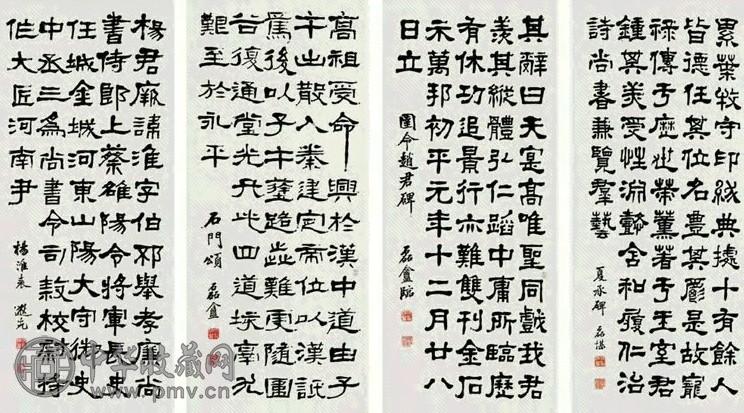 累葉牧守印紱典據十有餘人
皆德任其位名豊其爵是故寵
祿傳于歷世策薰著于王室君
鍾其美受性淵懿含和履仁治
詩尚書兼覽羣藝
夏承碑 磊
其辭曰天寔高唯聖同戲我君
羨其縱體弘仁蹈中庸所臨歷
有休功追景行亦難雙刊金石
示萬邦初平元年十二月廿八
日立
圉令趙君碑 磊盦臨
高祖受命興於漢中道由子
午出散入秦建定帝位以漢詆
焉後以子午塗路歮難更隨圍
谷復通堂光凡此四道垓鬲尤
艱至於永平
石門頌 磊盦
楊君厥諱淮字伯邳舉孝廉尚
書侍郎上蔡雒陽令將軍長史
任城金城河東山陽大守御史
中丞三為尚書令司隸校尉將
作大匠河南尹
楊淮表
中华收藏网
www.pmv.cn